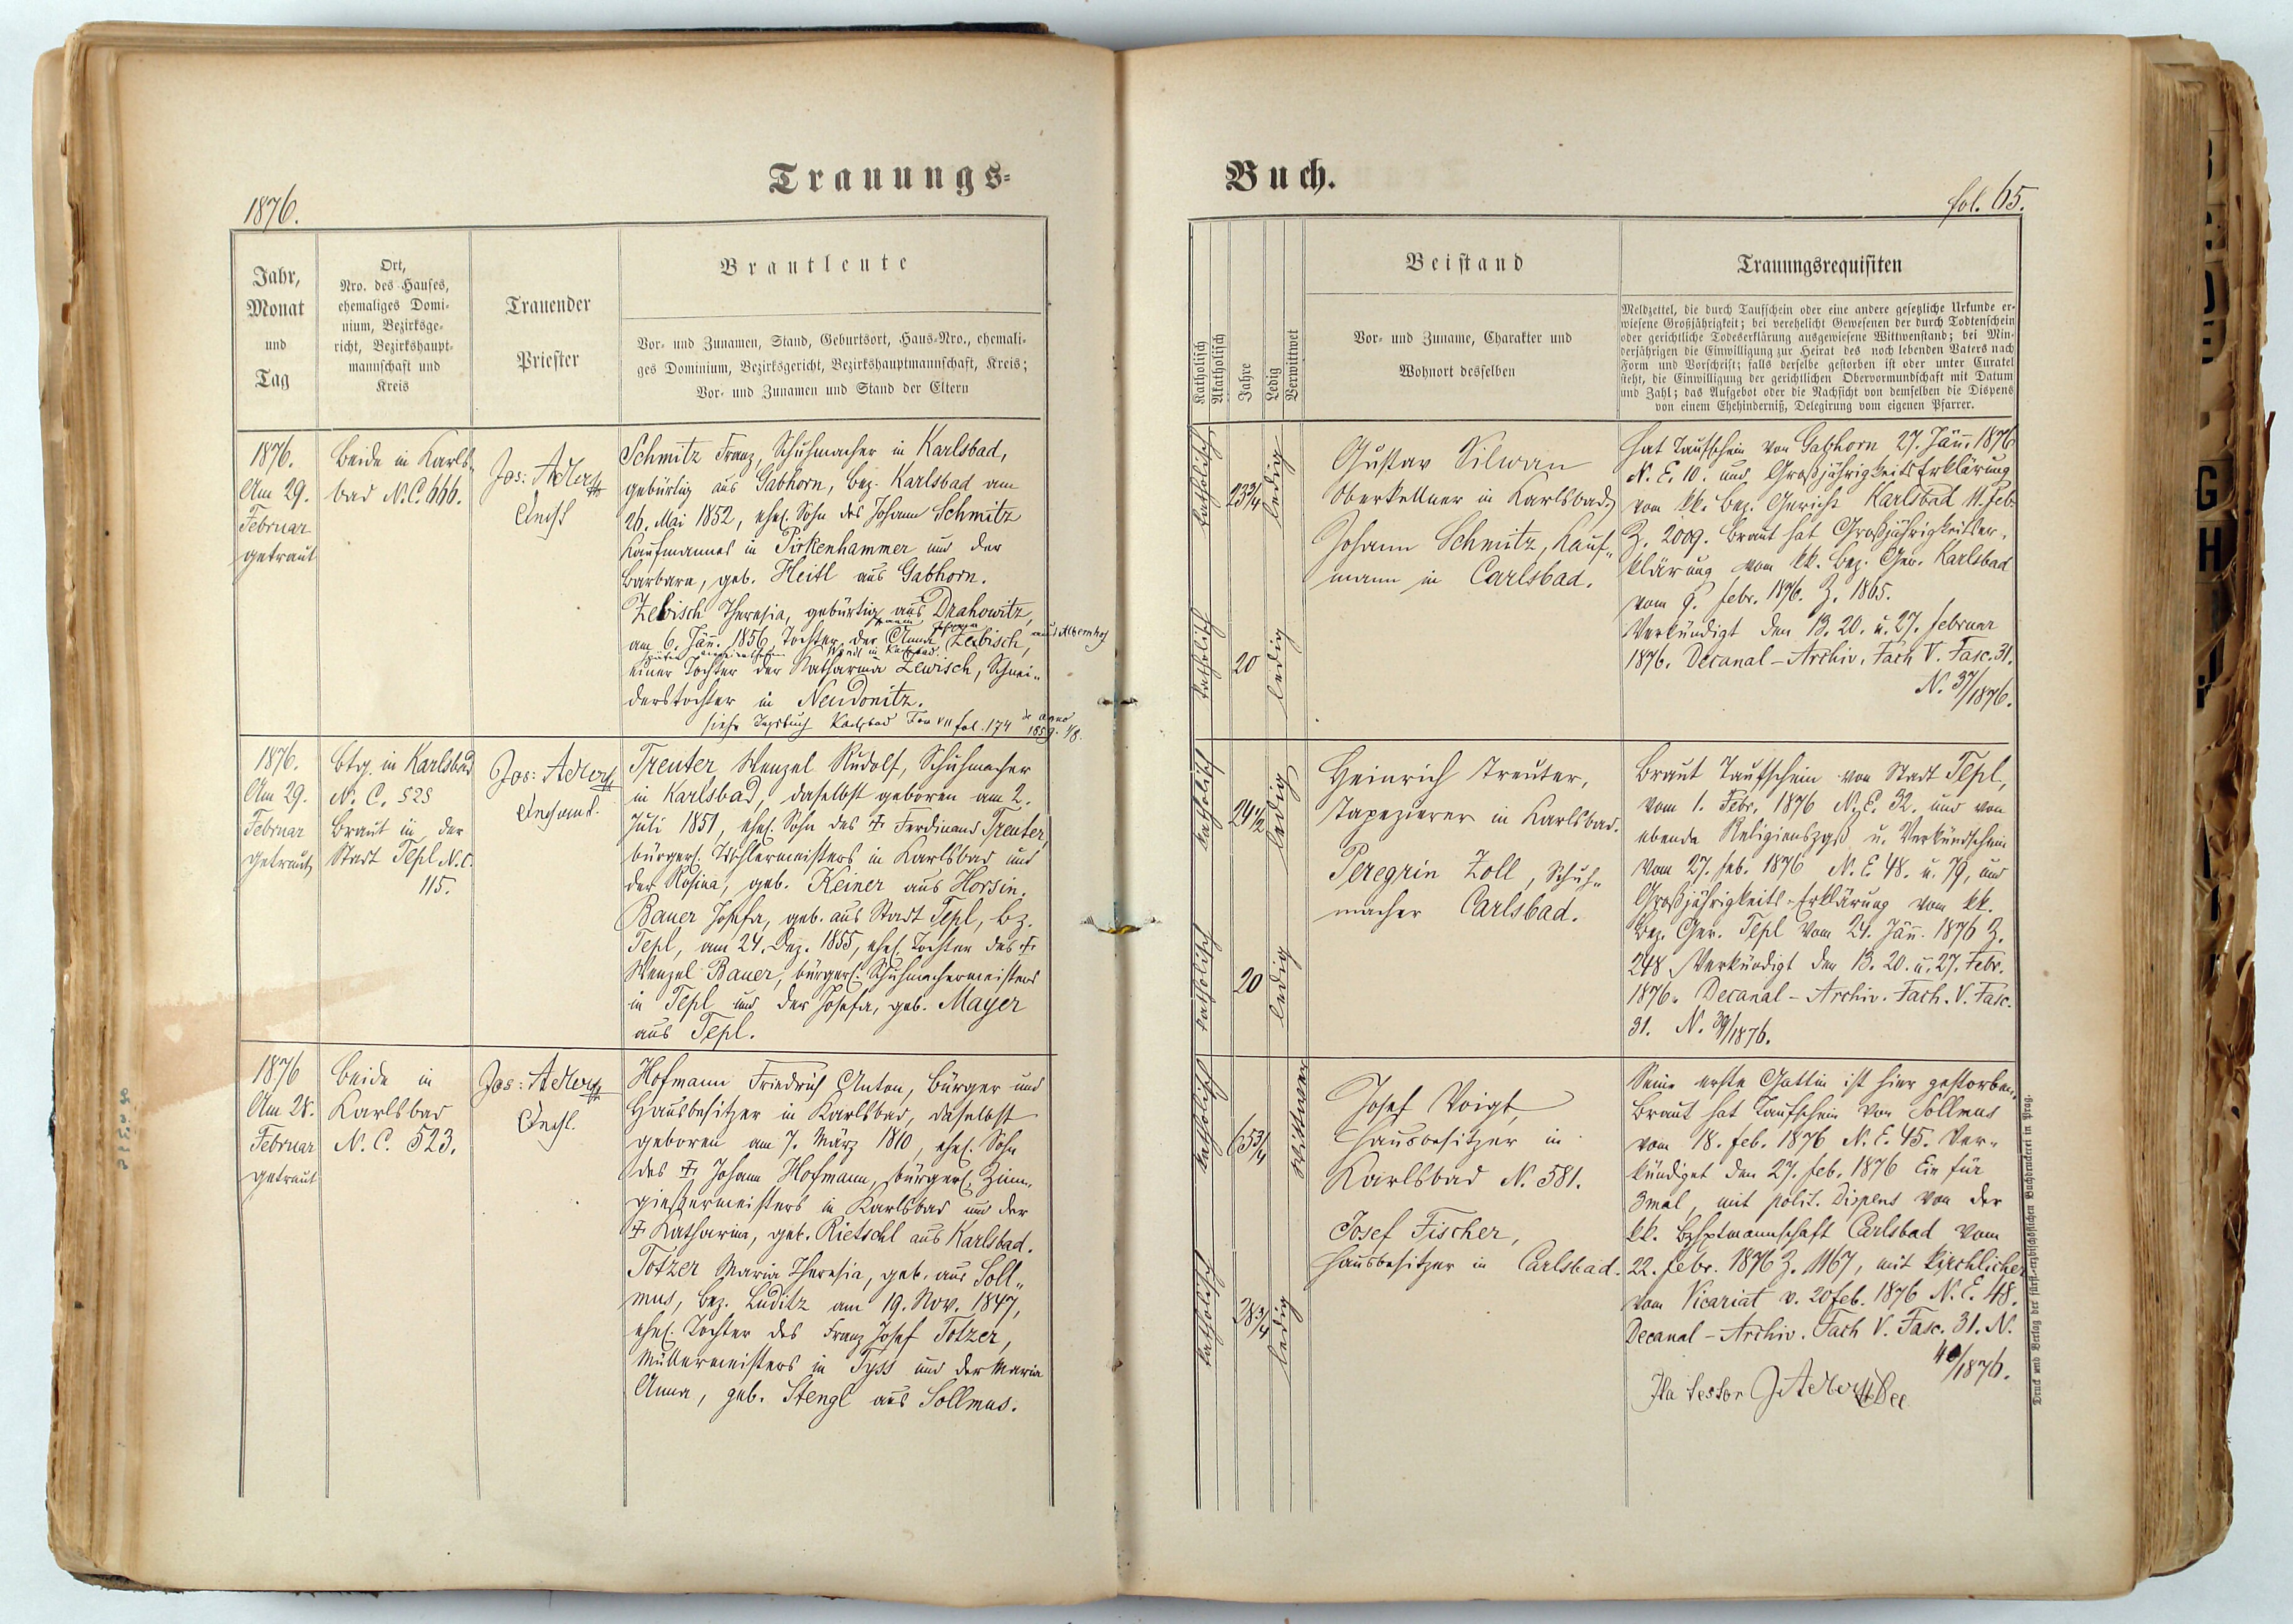 Trauungs-
1876.
Jahr,
Monat
und
Tag
Ort,
Nro. des Hauses,
ehemaliges Domi-
nium, Bezirksge-
richt, Bezirkshaupt-
mannschaft und
Kreis
Trauender
Priester
Brautleute
Vor- und Zunamen, Stand, Geburtsort, Haus-Nro., ehemali-
ges Dominium, Bezirksgericht, Bezirkshauptmannschaft, Kreis;
Vor- und Zunamen und Stand der Eltern
1876.
Am 29.
Februar
getraut
Beide in Karls-
bad N.C. 666.
Jos: Adler
Schmitz Franz, Schuhmacher in Karlsbad,
gebürtig aus Gabhorn, Bez. Karlsbad am
26. Mai 1852, ehel. Sohn des Johann Schmitz
Kaufmannes in Pirkenhammer und der
Barbara, geb. Heitl aus Gabhorn.
Zebisch Theresia, gebürtig aus Drahowitz,
am 6. Jän. 1856, Tochter der Anna Zebisch,
einer Tochter der Katharina Zewisch, Schnei-
derstochter in Neudonitz.
siehe Karlsbad Tom VII fol. 174 de anno
1876.
Am 29.
Februar
getraut
Btg. in Karlsbad
N. C. 525
Braut in der
Stadt Tepl N.C.
115.
Jos: Adler
Treuter Wenzel Rudolf, Schuhmacher
in Karlsbad, daselbst geboren am 2.
Juli 1851, ehel. Sohn des † Ferdinand Treuter,
bürgerl. Tischlermeisters in Karlsbad und
der Rosina, geb. Keiner aus Horsin.
Bauer Josefa, geb. aus Stadt Tepl, Bz.
Tepl, am 24. Dez. 1855, ehel. Tochter des †
Wenzel Bauer, bürgerl. Schuhmachermeisters
in Tepl und der Josefa, geb. Mayer
aus Tepl.
1876
Am 28.
Februar
getraut
Beide in
Karlsbad
N. C. 523.
Jos: Adler
Hofmann Friedrich Anton, Bürger und
Hausbesitzer in Karlsbad, daselbst
geboren am 7. März 1810, ehel. Sohn
des † Johann Hofmann, bürgerl. Zinn-
gießermeisters in Karlsbad und der
† Katharina, geb. Rietschl aus Karlsbad.
Totzer Maria Theresia, geb. aus Soll-
mus, Bez. Luditz am 19. Nov. 1847,
ehel. Tochter des Franz Josef Totzer,
Müllermeisters in Tyss und der Maria
Anna, geb. Stengl aus Sollmus.
Buch.
fol. 65.
Katholisch
Akatholisch
Jahre
Ledig
Verwittwet
Beistand
Vor- und Zuname, Charakter und
Wohnort desselben
Trauungsrequisiten
Meldzettel, die durch Taufschein oder eine andere gesetzliche Urkunde er-
wiesene Großjährigkeit; bei verehelicht Gewesenen der durch Todtenschein
oder gerichtliche Todeserklärung ausgewiesene Wittwenstand; bei Min-
derjährigen die Einwilligung zur Heirat des noch lebenden Vaters nach
Form und Vorschrift; falls derselbe gestorben ist oder unter Curatel
steht, die Einwilligung der gerichtlichen Obervormundschaft mit Datum
und Zahl; das Aufgebot oder die Nachsicht von demselben die Dispens
von einem Ehehinderniß, Delegirung vom eigenen Pfarrer.
katholisch
23 3/4
ledig
katholisch
20
ledig
Gustav Silwan
Oberkellner in Karlsbad
Johann Schmitz, Kauf-
mann in Carlsbad.
Hat Taufschein von Gabhorn 27. Jän. 1876
N. E. 10. und Großjährigkeits Erklärung
vom kk. Bez. Gericht Karlsbad 11. Feb.
Z. 2009. Braut hat Großjährigkeitser-
klärung vom kk. Bez. Ger. Karlsbad
vom 9. Febr. 1876. Z. 1865.
Verkündigt den 13. 20. u. 27. Februar
1876. Decanal-Archiv. Fach V. Fasc. 31.
N. 37/1876.
katholisch
24 1/2
ledig
katholisch
20
ledig
Heinrich Treuter,
Tapezierer in Karlsbad.
Peregrin Zoll, Schuh-
macher Carlsbad.
Braut Taufschein von Stadt Tepl,
vom 1. Febr. 1876 N. E. 32. und von
ebenda Religionszgß u. Verkündschein
vom 27. Feb. 1876 N. E. 48. u. 79, und
Großjährigkeits-Erklärung vom kk.
Bez. Ger. Tepl vom 24. Jän. 1876 Z.
248. Verkündigt den 13. 20. u. 27. Febr.
1876. Decanal-Archiv. Fach. V. Fasc.
31. N. 39/1876.
katholisch
65 3/4
Wittwer
katholisch
28 3/4
ledig
Josef Voigt,
Hausbesitzer in
Karlsbad N. 581.
Josef Fischer,
Hausbesitzer in Carlsbad.
Seine erste Gattin ist hier gestorben,
Braut hat Taufschein von Sollmus
vom 18. Feb. 1876 N. E. 45. Ver-
kündiget den 27. Feb. 1876 Ein für
3mal, mit polit. Dispens von der
kk. Bzhptmannschaft Carlsbad vom
22. Febr. 1876 Z. 1167, mit kirchlicher
vom Vicariat v. 20 Feb. 1876 N. E. 48.
Decanal-Archiv. Fach V. Fasc. 31. N.
/1876.
Ita testor J Adler
Druck und Verlag der fürst-erzbischöflichen Buchdruckerei in Prag.